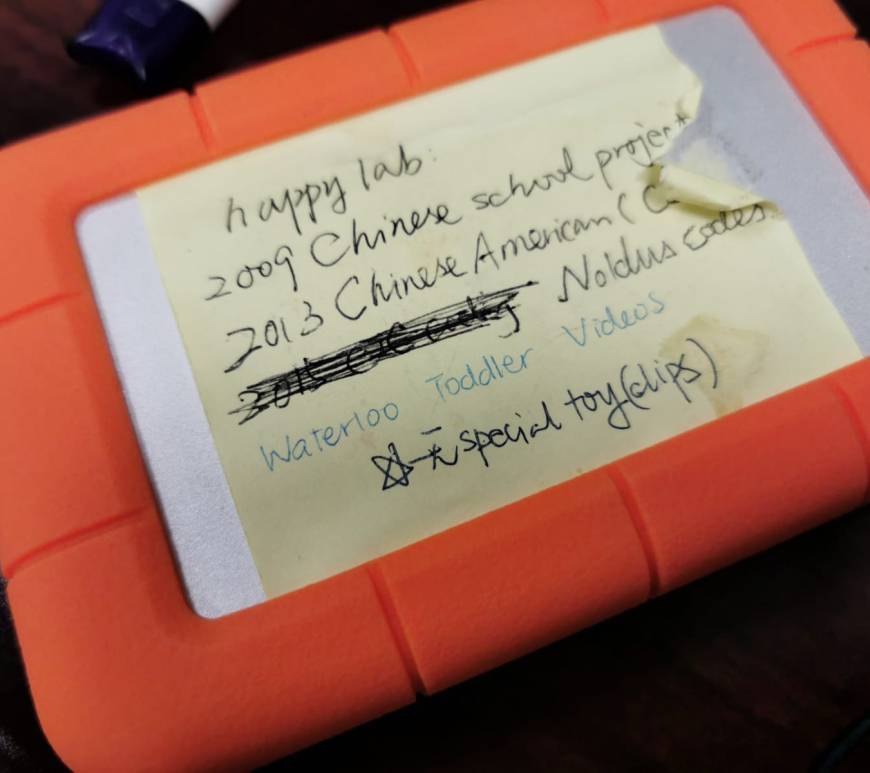 happy lab:
2009 Chinese school project
2013 Chinese American (
Noldus codes
Waterloo Toddler Videos
☆ 无 special toy (clips)